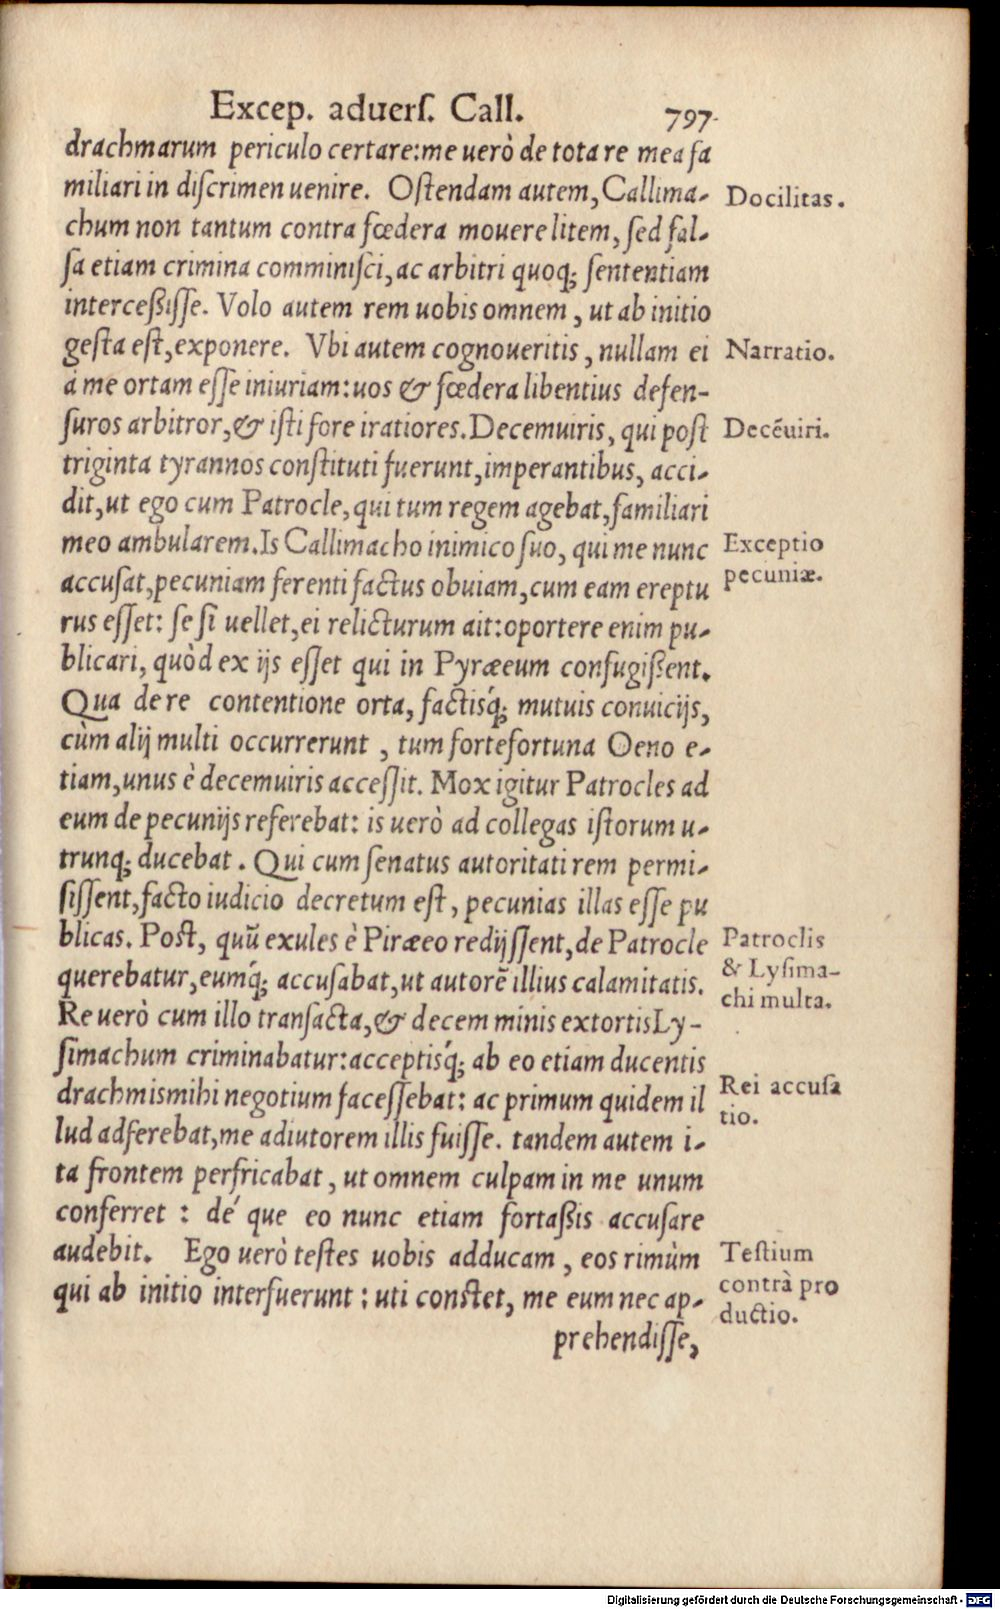 Excep. aduerſ. Call. 797
drachmarum periculo certare: me uerò de tota re mea fa
miliari in diſcrimen uenire. Oſtendam autem, Callima-
chum non tantum contra fœdera mouere litem, ſed fal-
ſa etiam crimina comminiſci, ac arbitri quoq; ſententiam
interceßiſſe. Volo autem rem uobis omnem, ut ab initio
geſta eſt, exponere. Vbi autem cognoueritis, nullam ei
à me ortam eſſe iniuriam: uos & fœdera libentius defen-
ſuros arbitror, & iſti fore iratiores. Decemuiris, qui poſt
triginta tyrannos conſtituti fuerunt, imperantibus, acci-
dit, ut ego cum Patrocle, qui tum regem agebat, familiari
meo ambularem. Is Callimacho inimico ſuo, qui me nunc
accuſat, pecuniam ferenti factus obuiam, cum eam ereptu
rus eſſet: ſe ſi uellet, ei relicturum ait: oportere enim pu-
blicari, quòd ex ijs eſſet qui in Pyræeum confugißent.
Qua de re contentione orta, factisq́; mutuis conuicijs,
cùm alij multi occurrerunt, tum fortefortuna Oeno e-
tiam, unus è decemuiris acceſſit. Mox igitur Patrocles ad
eum de pecunijs referebat: is uerò ad collegas iſtorum u-
trunq; ducebat. Qui cum ſenatus autoritati rem permi-
ſiſſent, facto iudicio decretum eſt, pecunias illas eſſe pu
blicas. Poſt, quũ exules è Piræeo redijſſent, de Patrocle
querebatur, eumq́; accuſabat, ut autorẽ illius calamitatis.
Re uerò cum illo tranſacta, & decem minis extortis Ly-
ſimachum criminabatur: acceptisq́; ab eo etiam ducentis
drachmis mihi negotium faceſſebat: ac primum quidem il
lud adferebat, me adiutorem illis fuiſſe. tandem autem i-
ta frontem perfricabat, ut omnem culpam in me unum
conferret: dé que eo nunc etiam fortaßis accuſare
audebit. Ego uerò teſtes uobis adducam, eos rimùm
qui ab initio interfuerunt: uti conſtet, me eum nec ap-
prehendiſſe,
Docilitas.
Narratio.
Decẽuiri.
Exceptio
pecuniæ.
Patroclis
& Lyſima-
chi multa.
Rei accuſa
tio.
Teſtium
contrà pro
ductio.
Digitalisierung gefördert durch die Deutsche Forschungsgemeinschaft - DFG